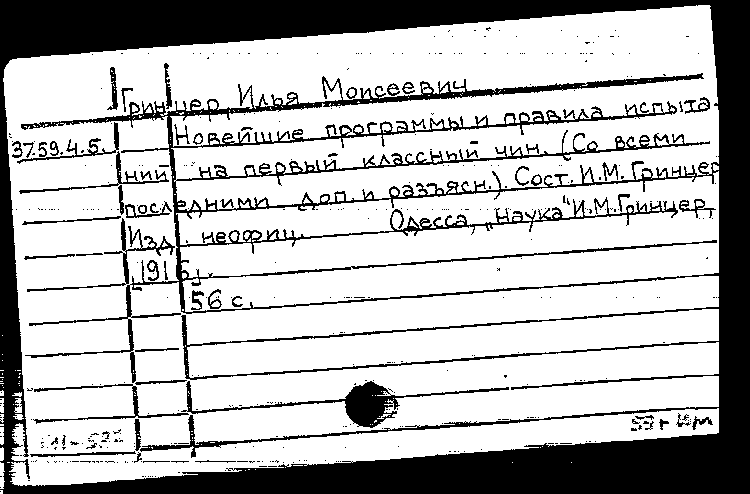 Гринцер, Илья Моисеевич
37.59.4.5. Новейшие программы и правила испыта-
ний на первый классный чин. (Со всеми
последними доп. и разъясн.). Сост. И.М. Гринцер
Изд. неофиц. Одесса, „Наука" И.М. Гринцер,
[191 г.
56 с.